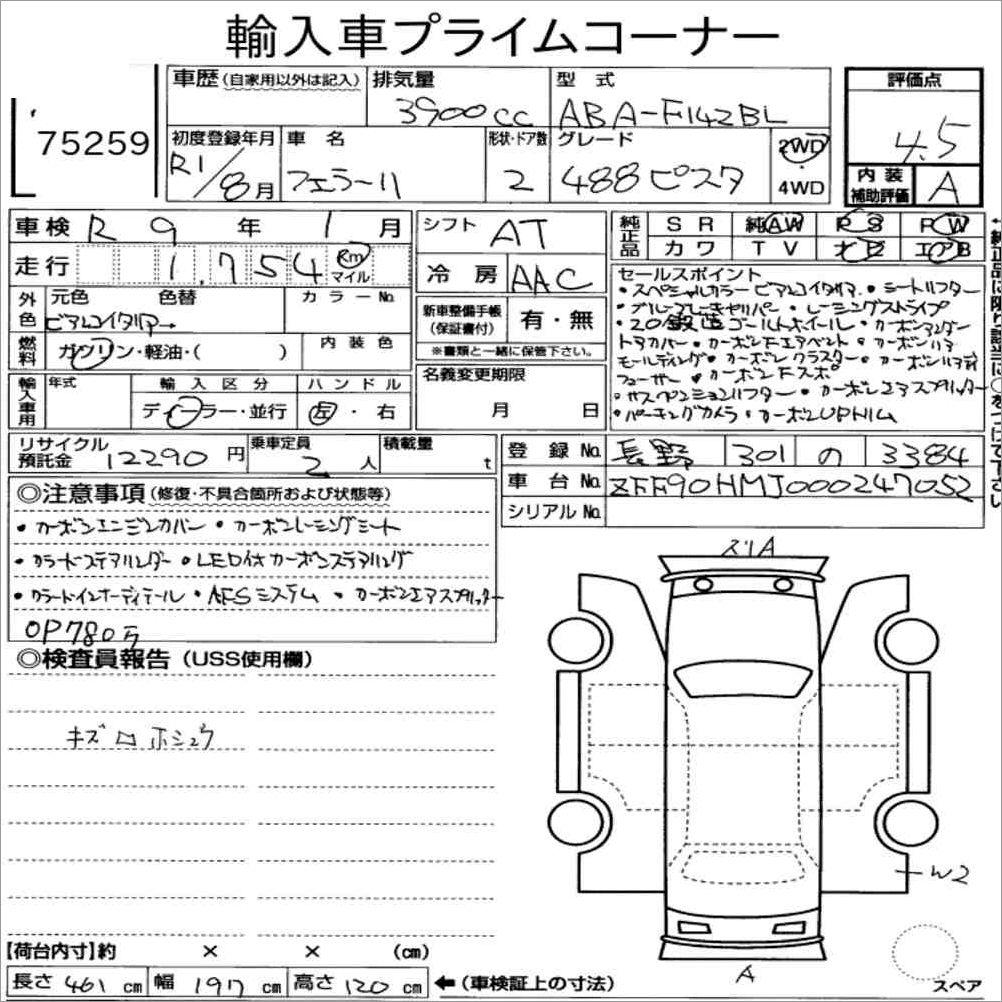 輸入車プライムコーナー
75259
車歴(自家用以外は記入) 排気量 3900cc 型式 ABA-F142BL
評価点 4.5
初度登録年月 R1/8月 車名 フェラーリ 形状・ドア数 2 グレード 488ピスタ 2WD 4WD
内装補助評価 A
車検 R 9年 1月 シフト AT
純正品 SR 純AW PS PW
カワ TV ナビ エアB
走行 1,754 Km マイル 冷房 AAC
外色 元色 色替 カラーNo.
ビアンコイタリア→
新車整備手帳(保証書付) 有・無
※書類と一緒に保管下さい。
燃料 ガソリン・軽油・( ) 内装色
名義変更期限 月 日
輸入車用 年式 輸入区分 ディーラー・並行 ハンドル 左・右
セールスポイント
・スペシャルカラービアンコイタリア・シートリフター
・ブルーブレーキキャリパー・レーシングストライプ
・20鍛造ゴールドホイール・カーボンアンダー
ドアカバー・カーボンFエアベント・カーボンリア
モールディング・カーボンクラスター・カーボンリアディ
フューザー・カーボンFスポ
・サスペンションリフター・カーボンエアスプリッター
・パーキングカメラ・カーボンUPトリム
←純正品に限り該当に○をつけて下さい
リサイクル預託金 12290円 乗車定員 2人 積載量 t
登録No. 長野 301 の 3384
車台No. ZFF90HMJ000247052
シリアルNo.
◎注意事項(修復・不具合箇所および状態等)
・カーボンエンジンカバー・カーボンレーシングシート
・カラードステアリングー・LED付カーボンステアリング
・カラードインナーディテール・AFSシステム・カーボンエアスプリッター
OP780万
◎検査員報告(USS使用欄)
キズ□ホシュウ
スリA
W2
A
スペア
【荷台内寸】約 × × (cm)
長さ 461cm 幅 197cm 高さ 120cm ←(車検証上の寸法)